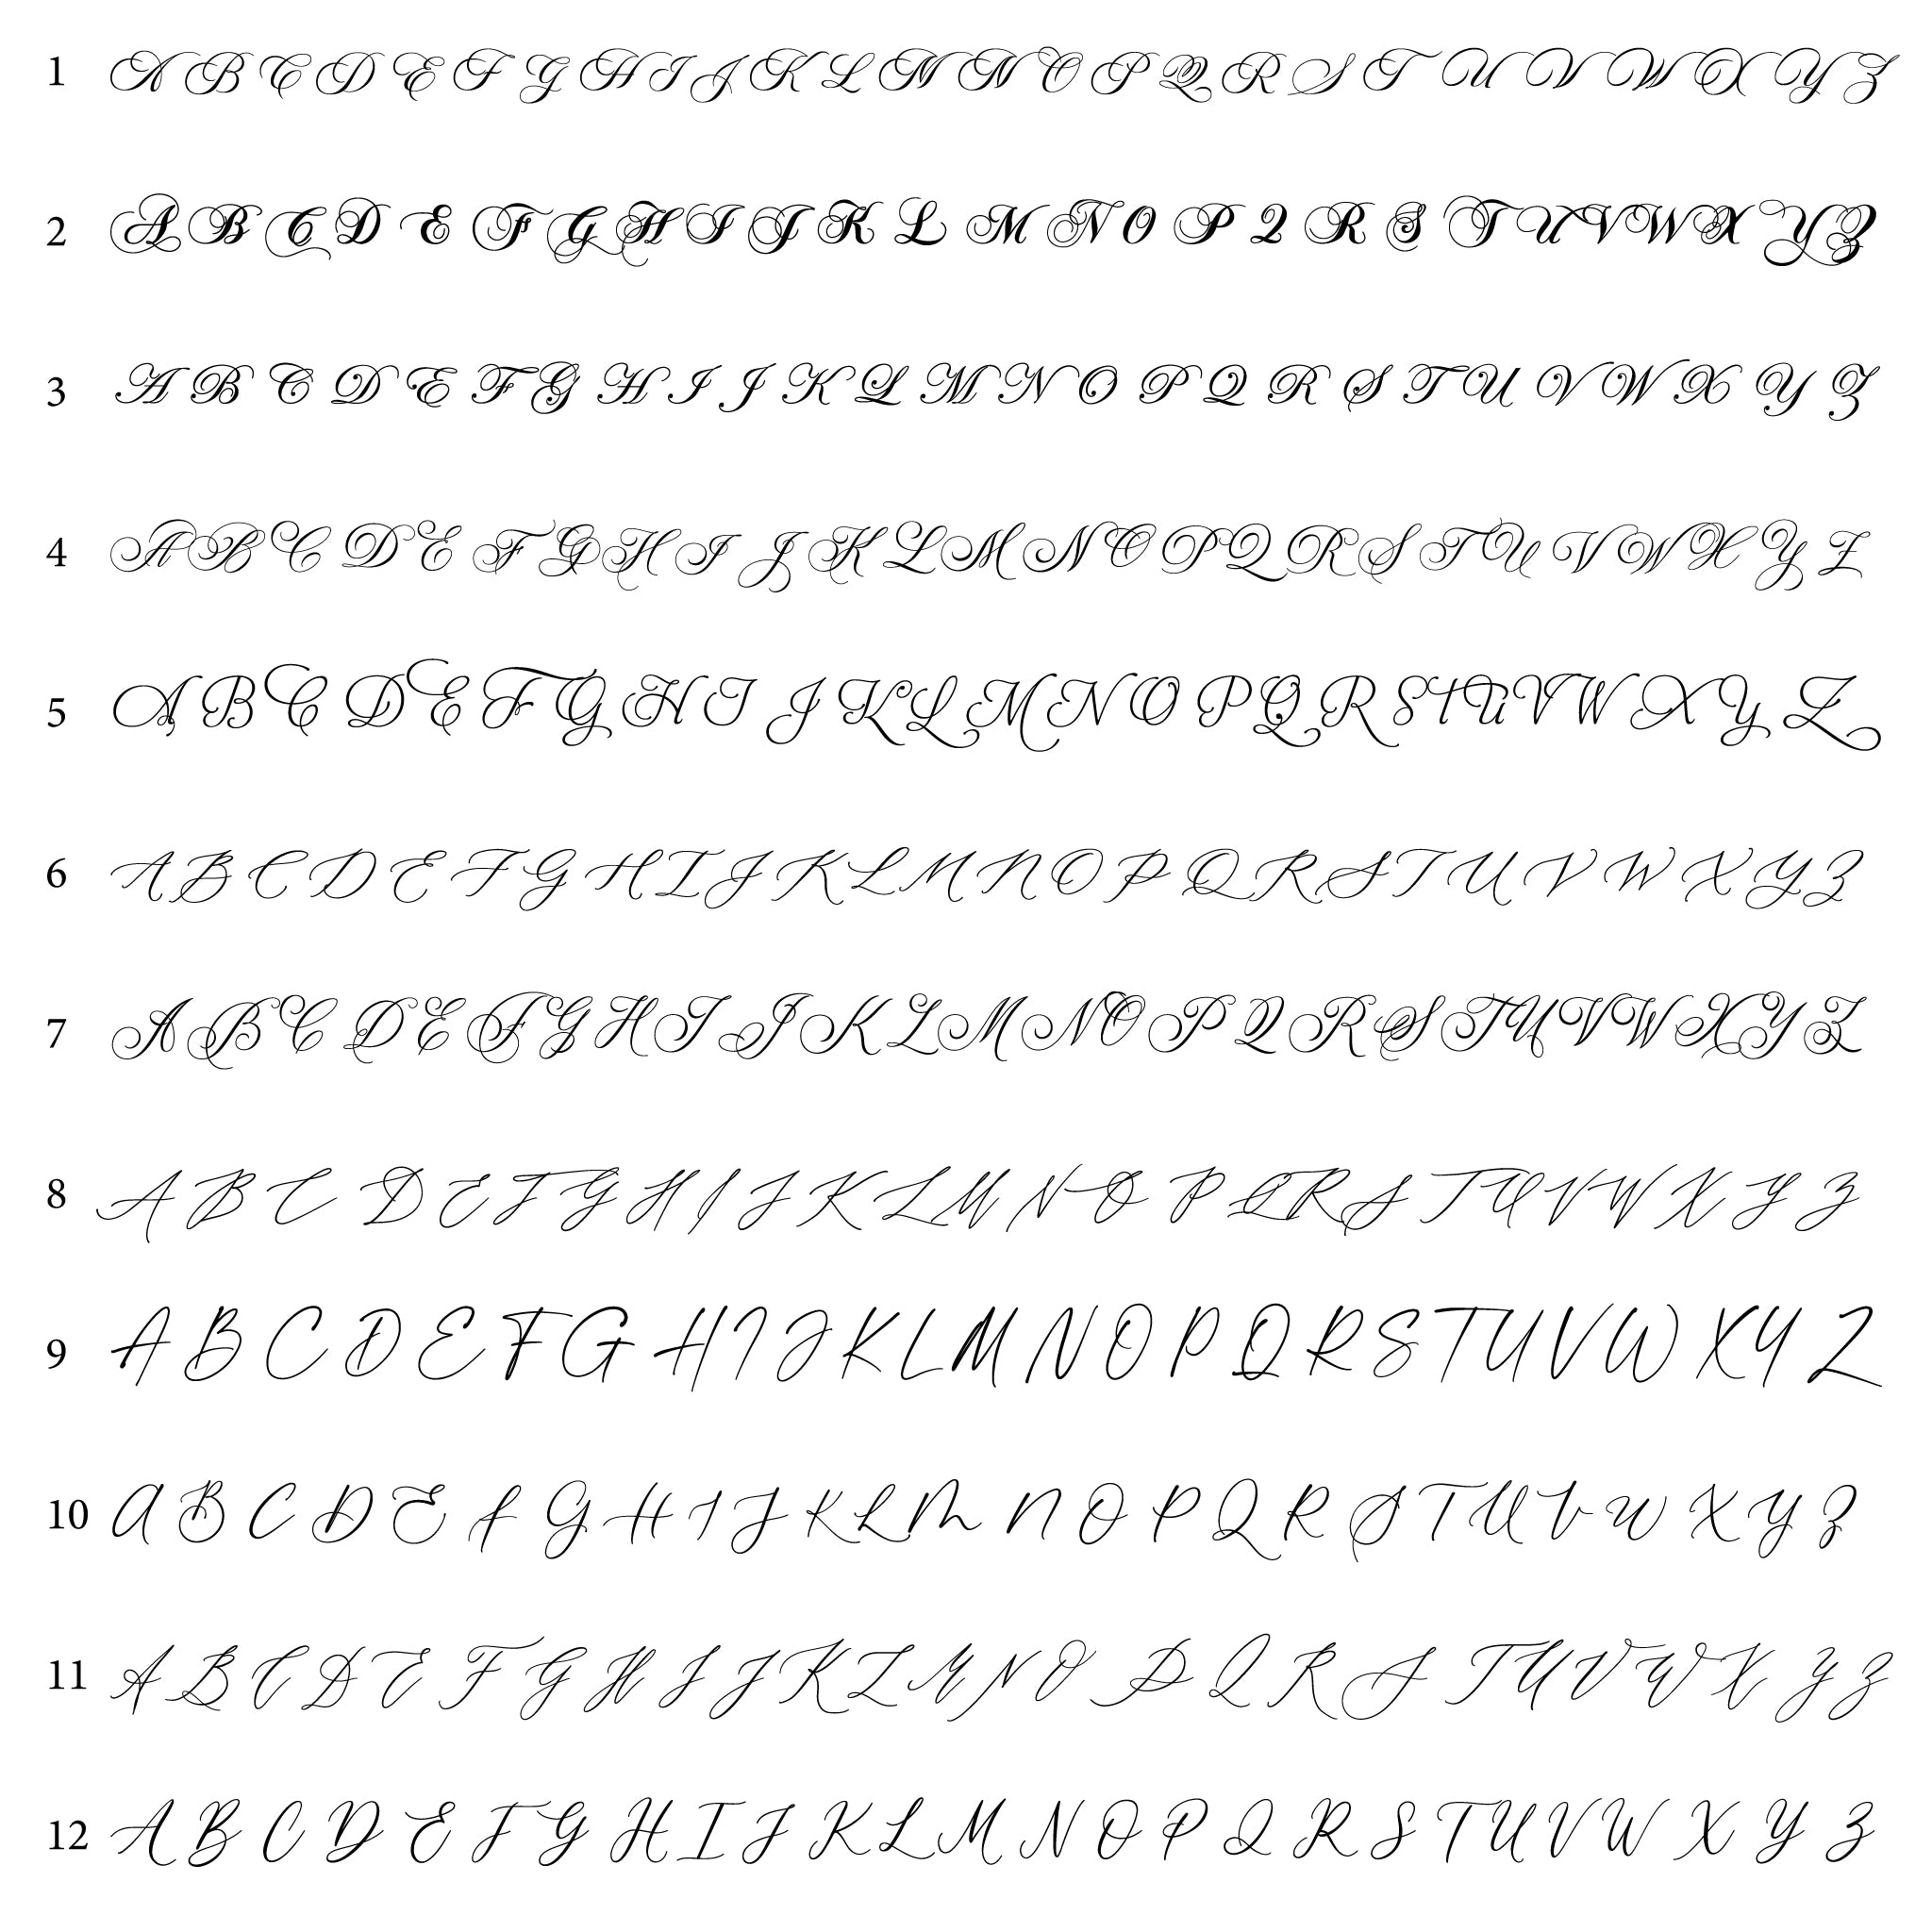 1 A B C D E F G H I J K L M N O P Q R S T U V W X Y Z
2 A B C D E F G H I J K L M N O P Q R S T U V W X Y Z
3 A B C D E F G H I J K L M N O P Q R S T U V W X Y Z
4 A B C D E F G H I J K L M N O P Q R S T U V W X Y Z
5 A B C D E F G H I J K L M N O P Q R S t U V W X Y Z
6 A B C D E F G H I J K L M N O P Q R S T U V W X Y Z
7 A B C D E F G H I J K L M N O P Q R S T U V W X Y Z
8 A B C D E F G H I J K L M N O P Q R S T U V W X Y Z
9 A B C D E F G H I J K L M N O P Q R S T U V W X Y Z
10 A B C D E f G H I J K L M N O P Q R S T U V W X Y Z
11 A B C D E F G H I J K L M N O P Q R S T U V W X Y Z
12 A B C D E F G H I J K L M N O P Q R S T U V W X Y Z